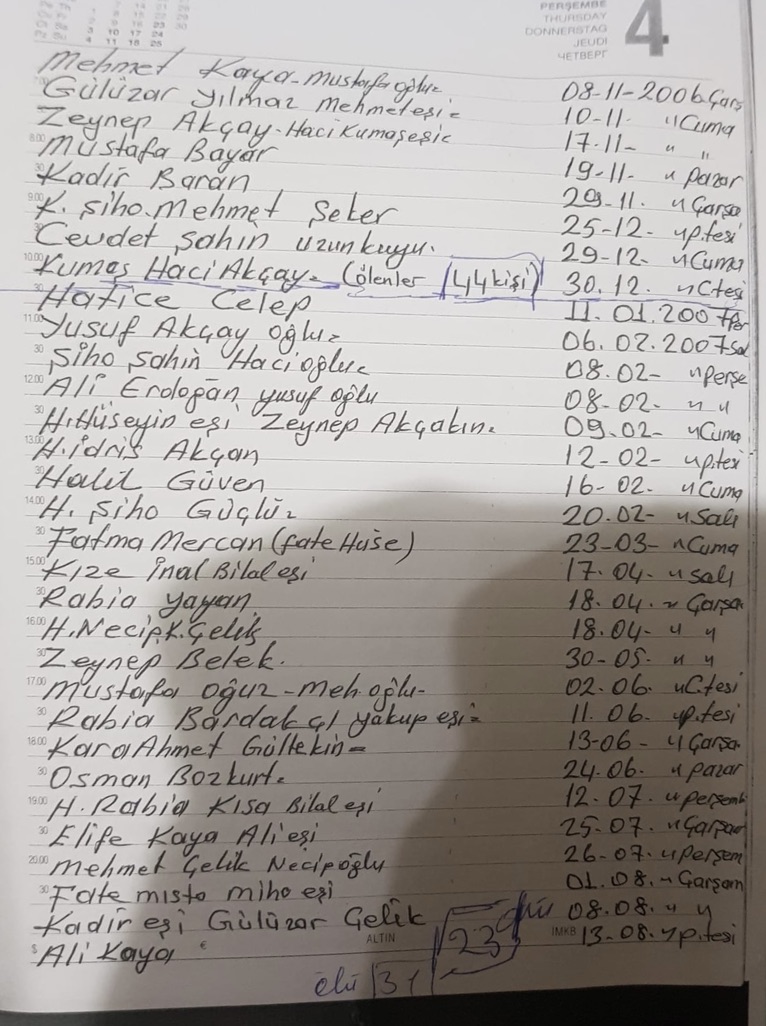 PERŞEMBE
THURSDAY
DONNERSTAG
JEUDI
ЧЕТВЕРГ
4
Mehmet Kaya-Mustafa oğlu 08-11-2006 Çarş
Gülüzar Yılmaz Mehmet eşi 10-11- " Cuma
Zeynep Akçay-Haci Kumaş eşi 17-11- " "
Mustafa Bayar 19-11- " Pazar
Kadir Baran 29-11. " Çarşa
K. Şiho. Mehmet Şeker 25-12- " P.tesi
Cevdet Şahin Uzunkuyu. 29-12- " Cuma
Kumaş Haci Akçay- (ölenler 44 kişi) 30.12. " C.tesi
Hatice Celep 11.01.2007 Per
Yusuf Akçay oğlu 06.02.2007 Sal
Şiho Şahin Haci oğlu 08.02- " Perşe
Ali Erdoğan Yusuf oğlu 08-02- " "
H.Hüseyin eşi Zeynep Akçalın. 09.02- " Cuma
H.İdris Akçan 12-02- " P.tesi
Halil Güven 16-02. " Cuma
H. Şiho Güçlü 20.02- " Salı
Fatma Mercan (fate Huse) 23-03- " Cuma
Kıze İnal Bilal eşi 17.04- " Salı
Rabia Yayan 18.04. " Çarşa
H.Necip.K.Çelik 18.04- " "
Zeynep Belek. 30-05- " "
Mustafa Oğuz-Meh.oğlu- 02.06. " C.tesi
Rabia Bardakçı Yakup eşi 11.06. " P.tesi
Kara Ahmet Gültekin 13-06- " Çarşa
Osman Bozkurt. 24.06. " Pazar
H. Rabia Kısa Bilal eşi 12.07. " Perşemb
Elife Kaya Ali eşi 25-07. " Çarşam
Mehmet Çelik Necip oğlu 26-07. " Perşem
Fate misto miho eşi 01.08. " Çarşam
Kadir eşi Gülüzar Çelik 08.08. " "
Ali Kaya 13-08. " P.tesi
23
ALTIN
IMKB
ölü 31